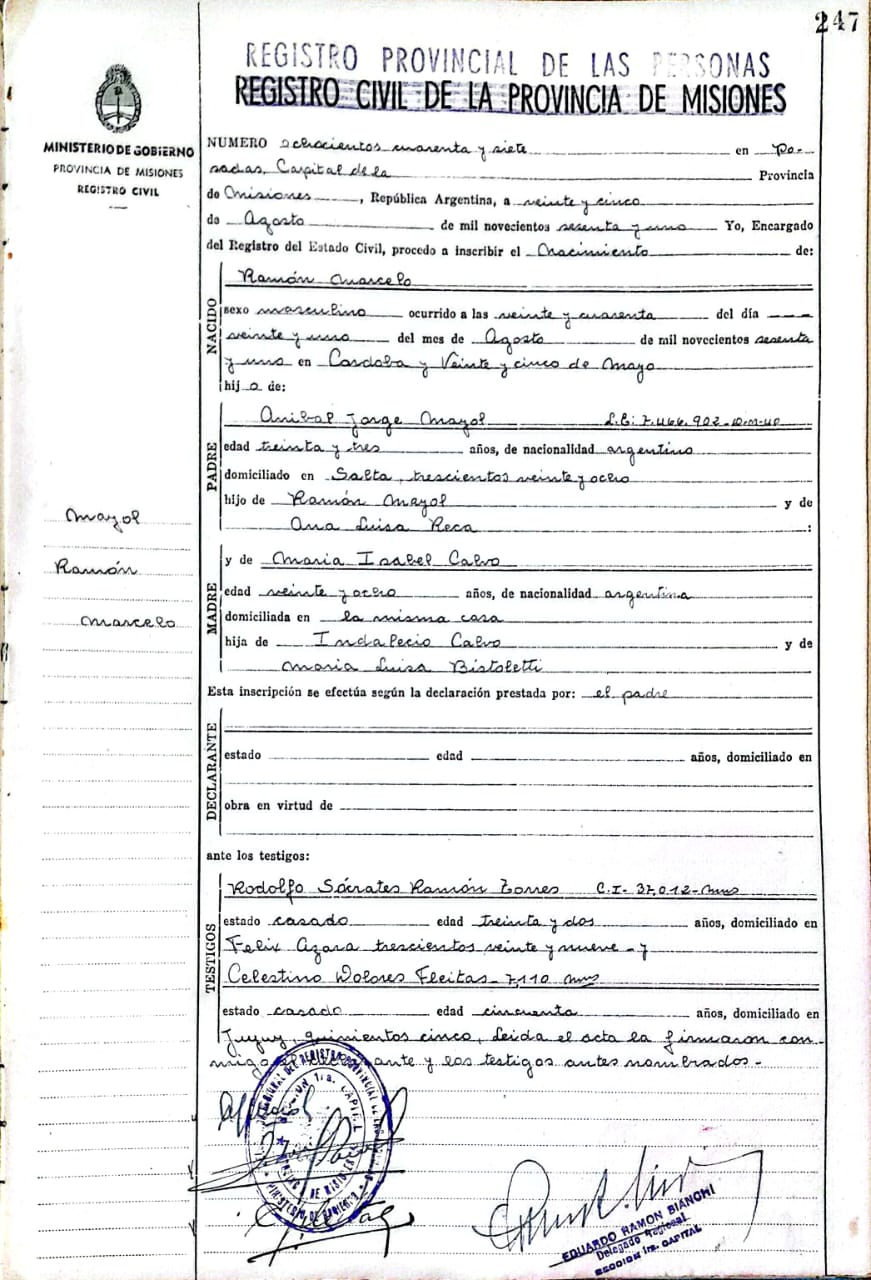 247
REGISTRO PROVINCIAL DE LAS PERSONAS
REGISTRO CIVIL DE LA PROVINCIA DE MISIONES
MINISTERIO DE GOBIERNO
PROVINCIA DE MISIONES
REGISTRO CIVIL
NUMERO ochocientos cuarenta y siete en Po-
sadas, Capital de la Provincia
de Misiones, República Argentina, a veinte y cinco
de Agosto de mil novecientos sesenta y uno Yo, Encargado
del Registro del Estado Civil, procedo a inscribir el Nacimiento de:
NACIDO
Ramón Marcelo
sexo masculino ocurrido a las veinte y cuarenta del día
veinte y uno del mes de Agosto de mil novecientos sesenta
y uno en Cordoba y Veinte y cinco de Mayo
hijo de:
PADRE
Anibal Jorge Mayol L.E: 7.466.902-D.M-40
edad treinta y tres años, de nacionalidad argentino
domiciliado en Salta, trescientos veinte y ocho
hijo de Ramón Mayol y de
Ana Luisa Reca :
Mayol
Ramón
Marcelo
MADRE
y de Maria Isabel Calvo
edad veinte y ocho años, de nacionalidad argentina
domiciliada en la misma casa
hija de Indalecio Calvo y de
Maria Luisa Bistoletti
Esta inscripción se efectúa según la declaración prestada por: el padre
DECLARANTE
estado edad años, domiciliado en
obra en virtud de
ante los testigos:
TESTIGOS
Rodolfo Sócrates Ramón Torres C.I- 37.012-Mnes
estado casado edad treinta y dos años, domiciliado en
Felix Azara trescientos veinte y nueve - y
Celestino Dolores Fleitas - 7.110 Mnes
estado casado edad cincuenta años, domiciliado en
Jujuy, quinientos cinco, Leida el acta la firmaron con-
migo el declarante y los testigos antes nombrados.-
EDUARDO RAMON BIANCHI
Delegado Regional
SECCION 1ra. CAPITAL